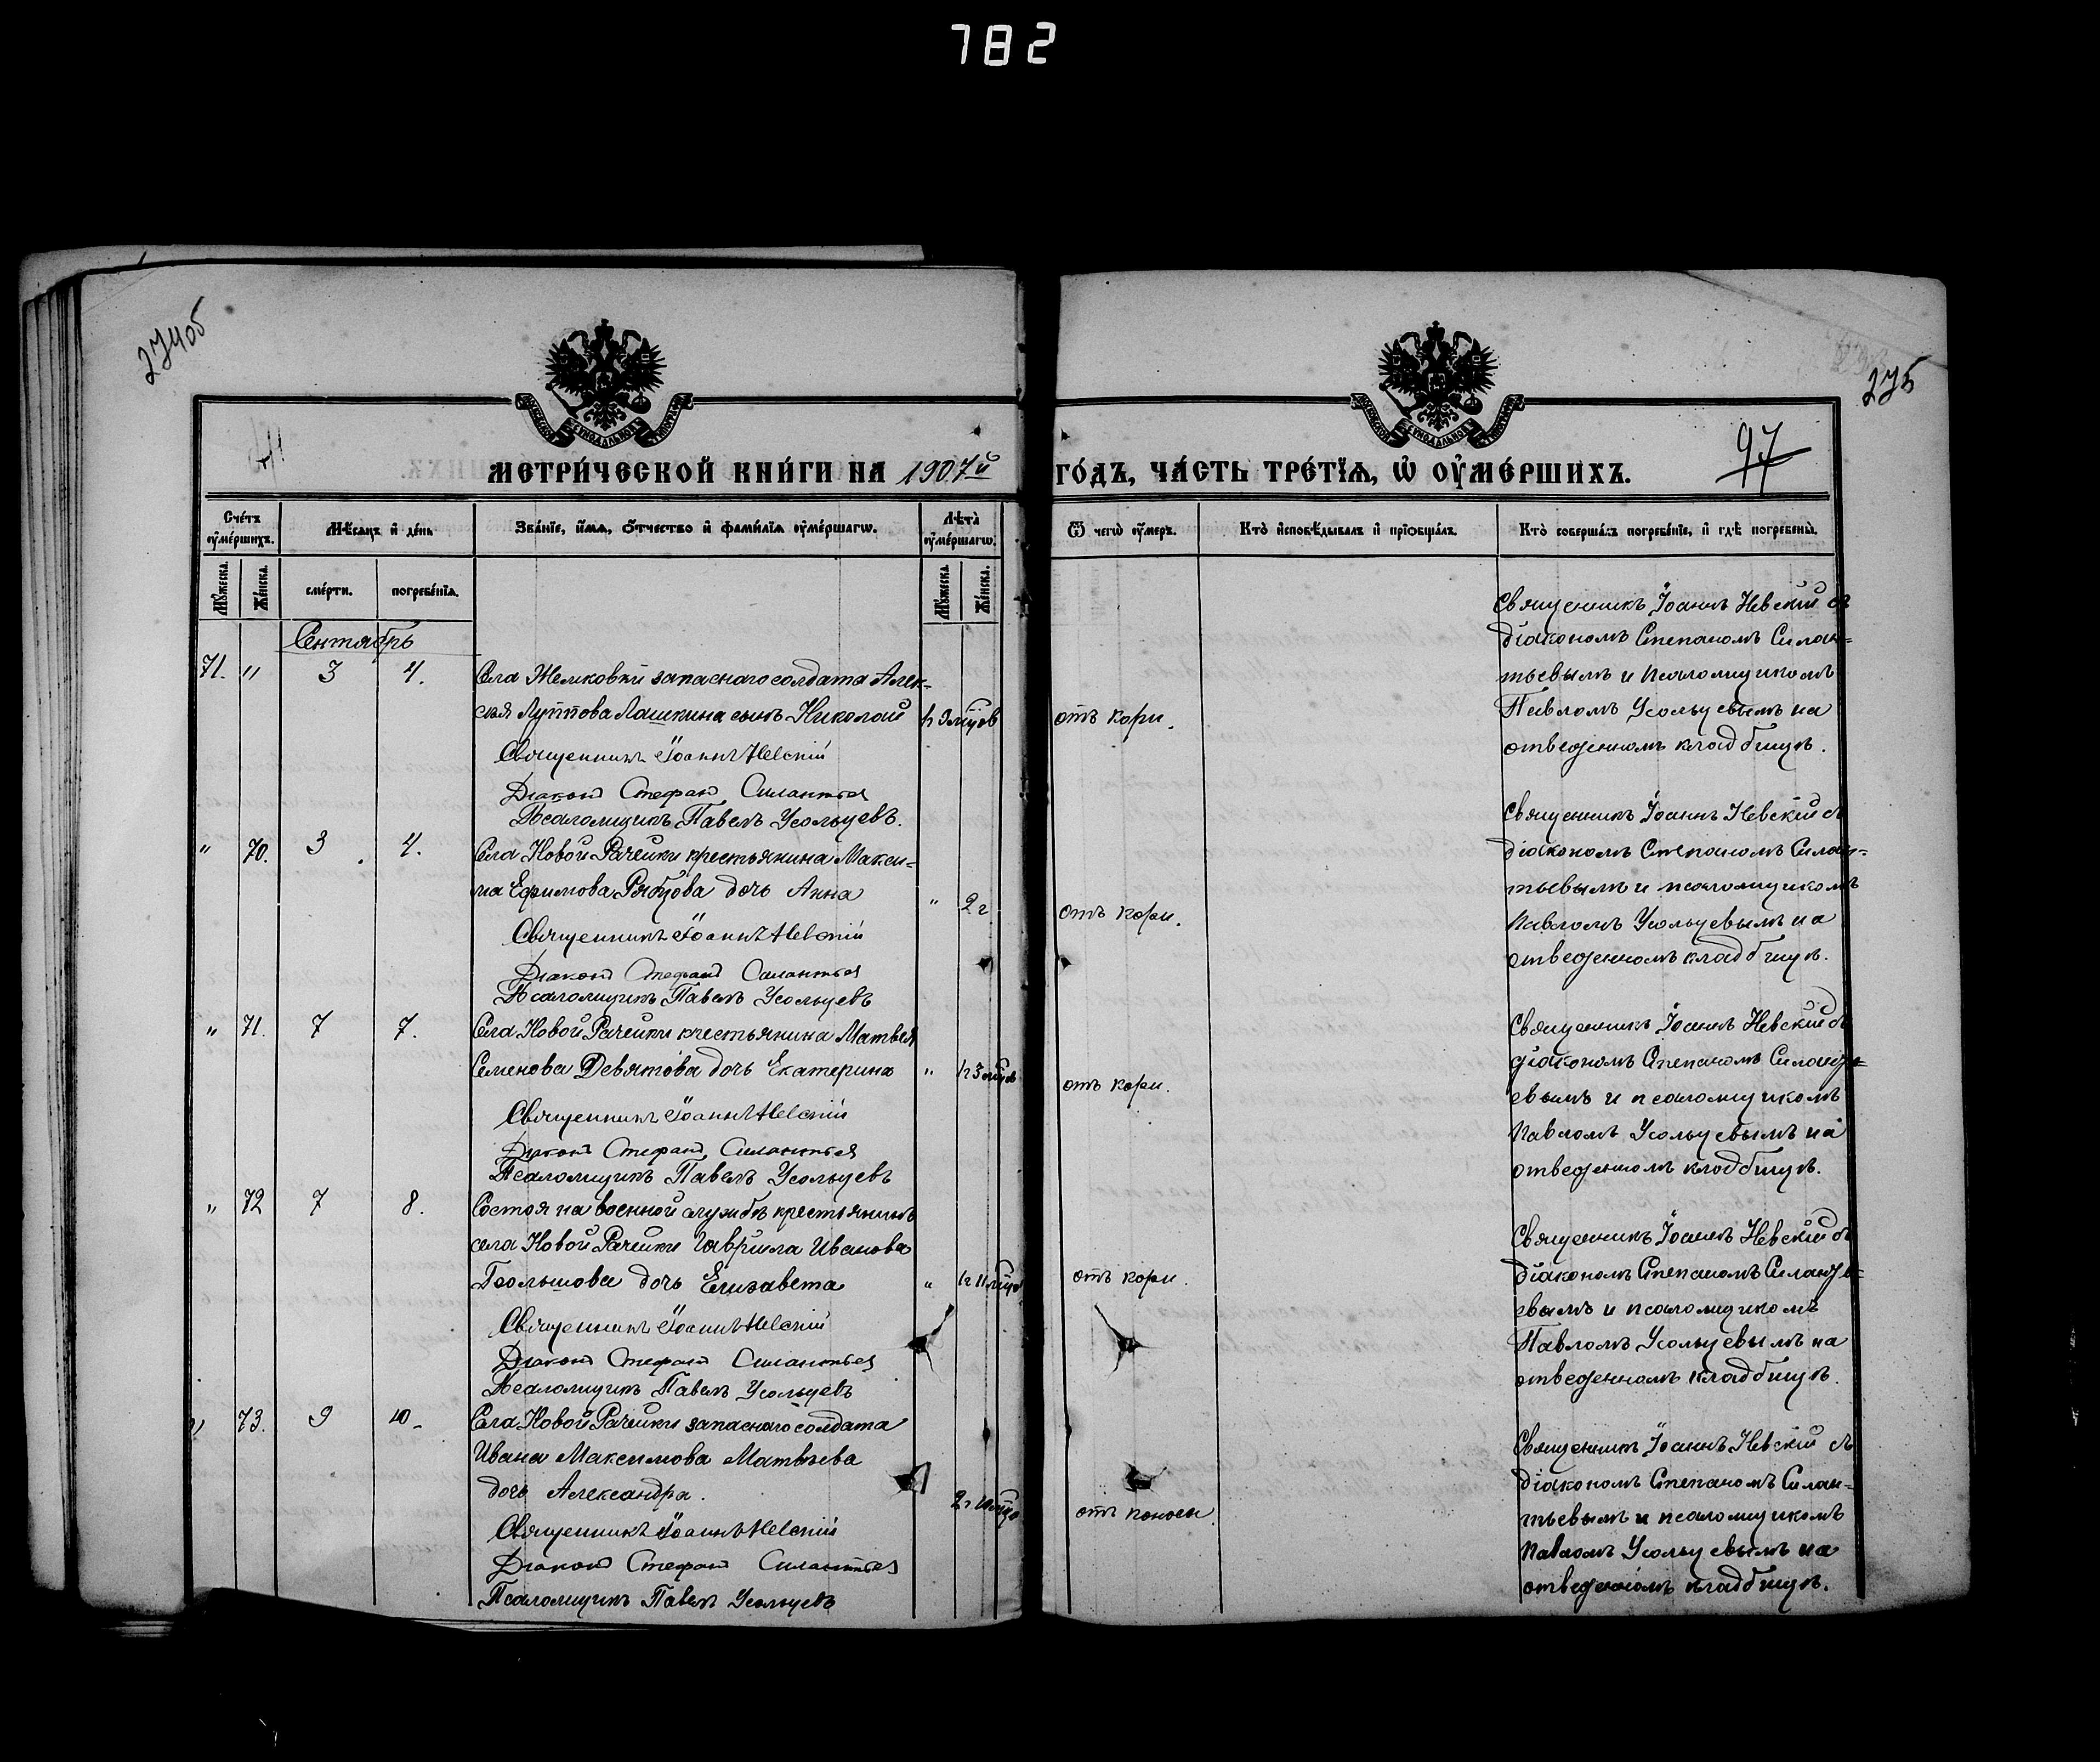 782
274об
275
97
МЕТРИ́ЧЕСКОЙ КНИ́ГИ НА 1907й ГО́ДЪ, ЧА́СТЬ ТРЕ́ТЇѦ, Ѡ҆ ОУ҆МЕ́РШИХЪ.
Сче́тъ оу҆ме́ршихъ.
Мѣ́сѧцъ и҆ де́нь
Зва́нїе, и҆́мѧ, ѻ҆́тчество и҆ фами́лїѧ оу҆ме́ршагѡ.
Лѣ́та оу҆ме́ршагѡ.
Ѿ чегѡ̀ оу҆́меръ.
Кто̀ и҆сповѣ́дывалъ и҆ прїѻбща́лъ.
Кто̀ соверша́лъ погребе́нїе, и҆ гдѣ̀ погребены̀.
Мꙋ́жеска.
Же́нска.
сме́рти.
погребе́нїѧ.
Мꙋ́жеска.
Же́нска.
Сентябрь
71. " 3 4.
Села Жемковки запаснаго солдата Алек-
сѣя Лашкина сынъ Николай
отъ кори.
Священникъ Іоаннъ Невскій
Діаконъ Стефанъ Силантьев
Псаломщикъ Павелъ Усольцевъ.
Священникъ Іоаннъ Невскій съ
діакономъ Степаномъ Силан=
тьевымъ и псаломщикомъ
Павломъ Усольцевымъ на
отведенномъ кладбищѣ.
" 70. 3 4.
Села Новой Рачейки крестьянина Макси=
ма Ефимова Рябцова дочь Анна
" 2 г
отъ кори.
Священникъ Іоаннъ Невскій
Діаконъ Стефанъ Силантьев
Псаломщикъ Павелъ Усольцевъ
Священникъ Іоаннъ Невскій съ
діакономъ Степаномъ Силан=
тьевымъ и псаломщикомъ
Павломъ Усольцевымъ на
отведенномъ кладбищѣ.
" 71. 7 7.
Села Новой Рачейки крестьянина Матвѣя
Семенова Девятова дочь Екатерина
" 1г 3 мѣцъ
отъ кори.
Священникъ Іоаннъ Невскій
Діаконъ Стефанъ Силантьев
Псаломщикъ Павелъ Усольцевъ
Священникъ Іоаннъ Невскій съ
діакономъ Степаномъ Силанть=
евымъ и псаломщикомъ
Павломъ Усольцевымъ на
отведенномъ кладбищѣ.
" 72 7 8.
Состоя на военной службѣ крестьянинъ
села Новой Рачейки Гавриила Иванова
дочь Елизавета
" 1г 11 мѣцъ
отъ кори.
Священникъ Іоаннъ Невскій
Діаконъ Стефанъ Силантьев
Псаломщикъ Павелъ Усольцевъ
Священникъ Іоаннъ Невскій съ
діакономъ Степаномъ Силанть=
евымъ и псаломщикомъ
Павломъ Усольцевымъ на
отведенномъ кладбищѣ.
" 73. 9 10
Села Новой Рачейки запаснаго солдата
Ивана Максимова Матвѣева
дочь Александра.
отъ поноса
Священникъ Іоаннъ Невскій
Діаконъ Стефанъ Силантьев
Псаломщикъ Павелъ Усольцевъ
Священникъ Іоаннъ Невскій съ
діакономъ Степаномъ Силан-
тьевымъ и псаломщикомъ
Павломъ Усольцевымъ на
отведенномъ кладбищѣ.